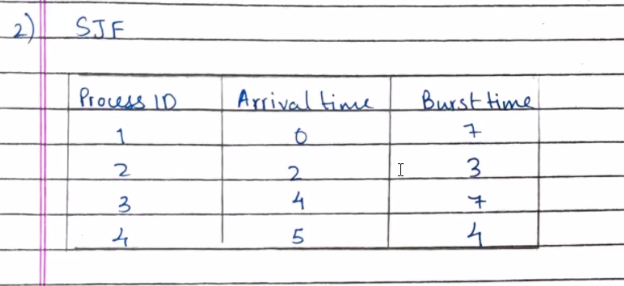 2) SJF
Process ID Arrival time Burst time
1 0 7
2 2 3
3 4 7
4 5 4